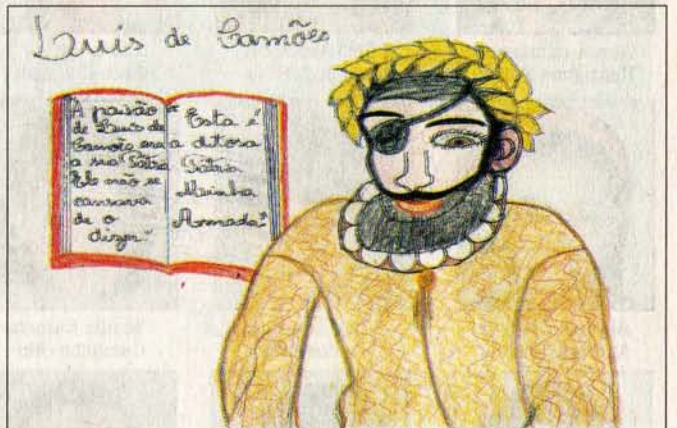 Luis de Camões
A paixão
de Luis de
Camois era
a sua Pátria
Ele não se
cansava
de o
dizer:
"Esta é
a ditosa
Pátria
Minha
Amada"